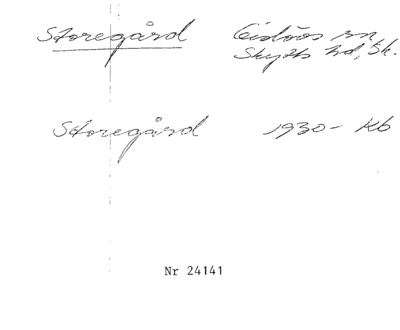 Storegård Gislövs sn
Skytts hd, Sk.
Storegård 1930- Kb
Nr 24141